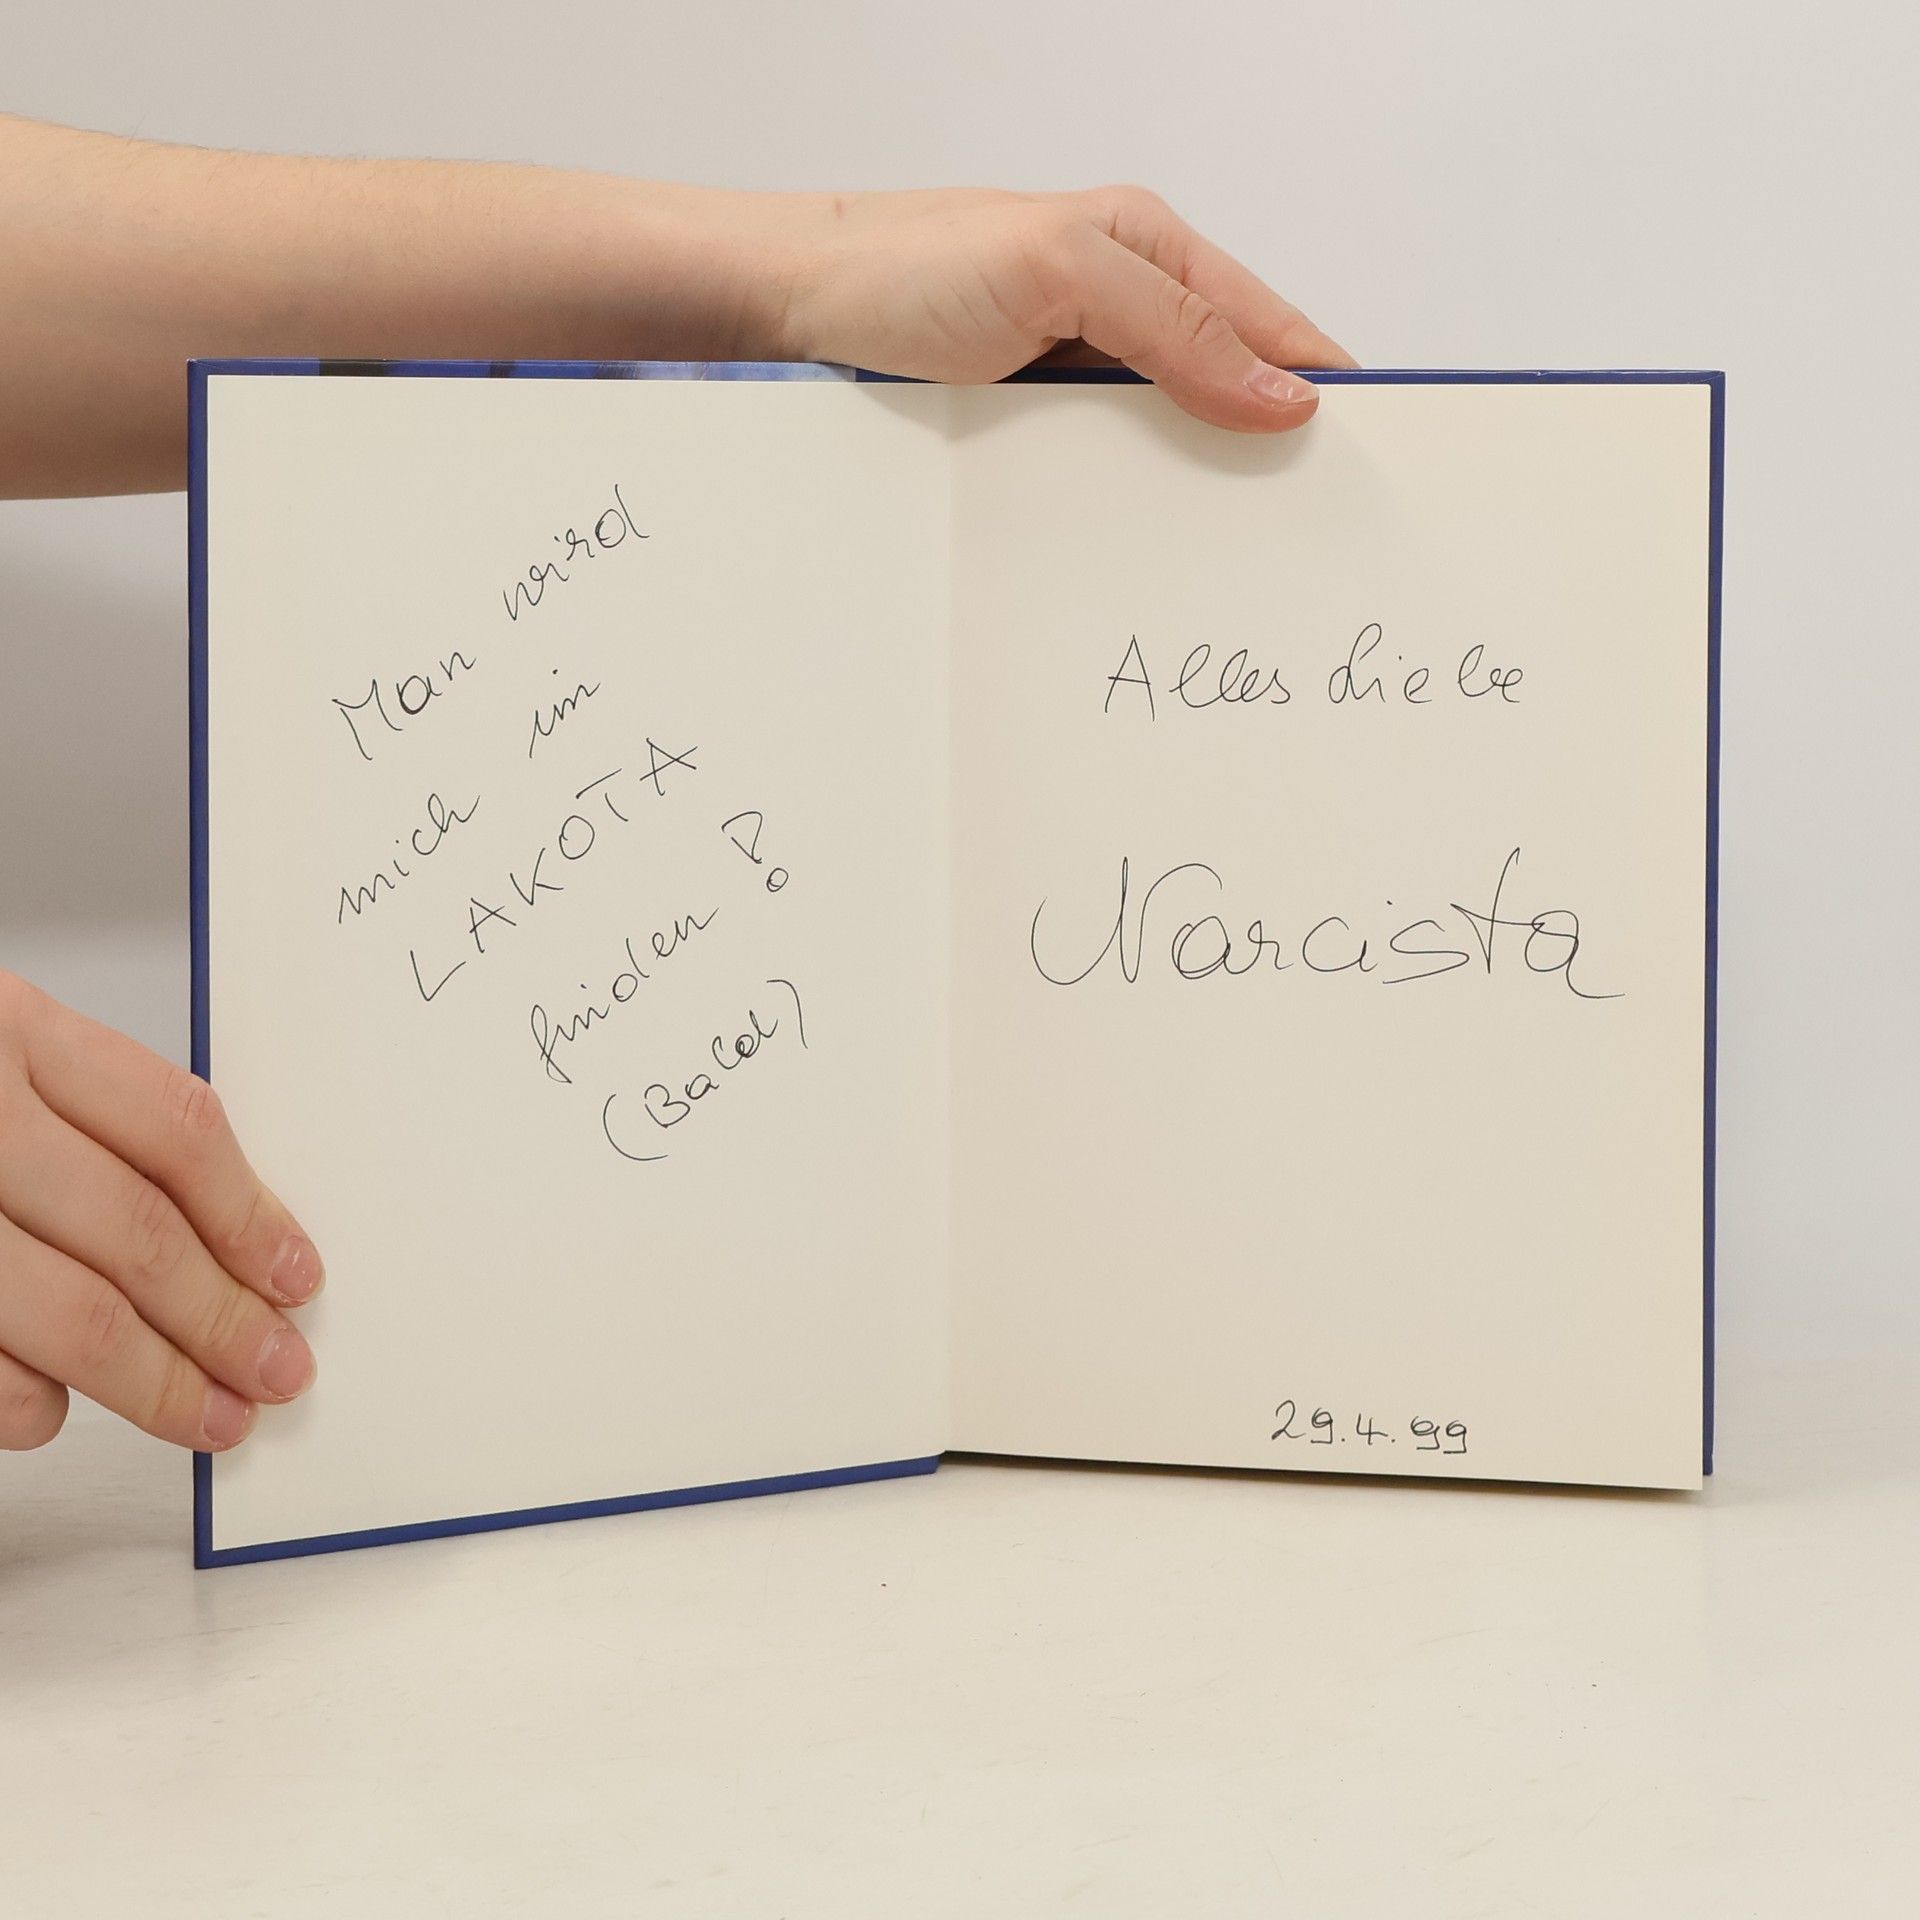 Man wird
mich im
LAKOTA
finden!
(Bald)
Alles Liebe
Narcista
29.4.99